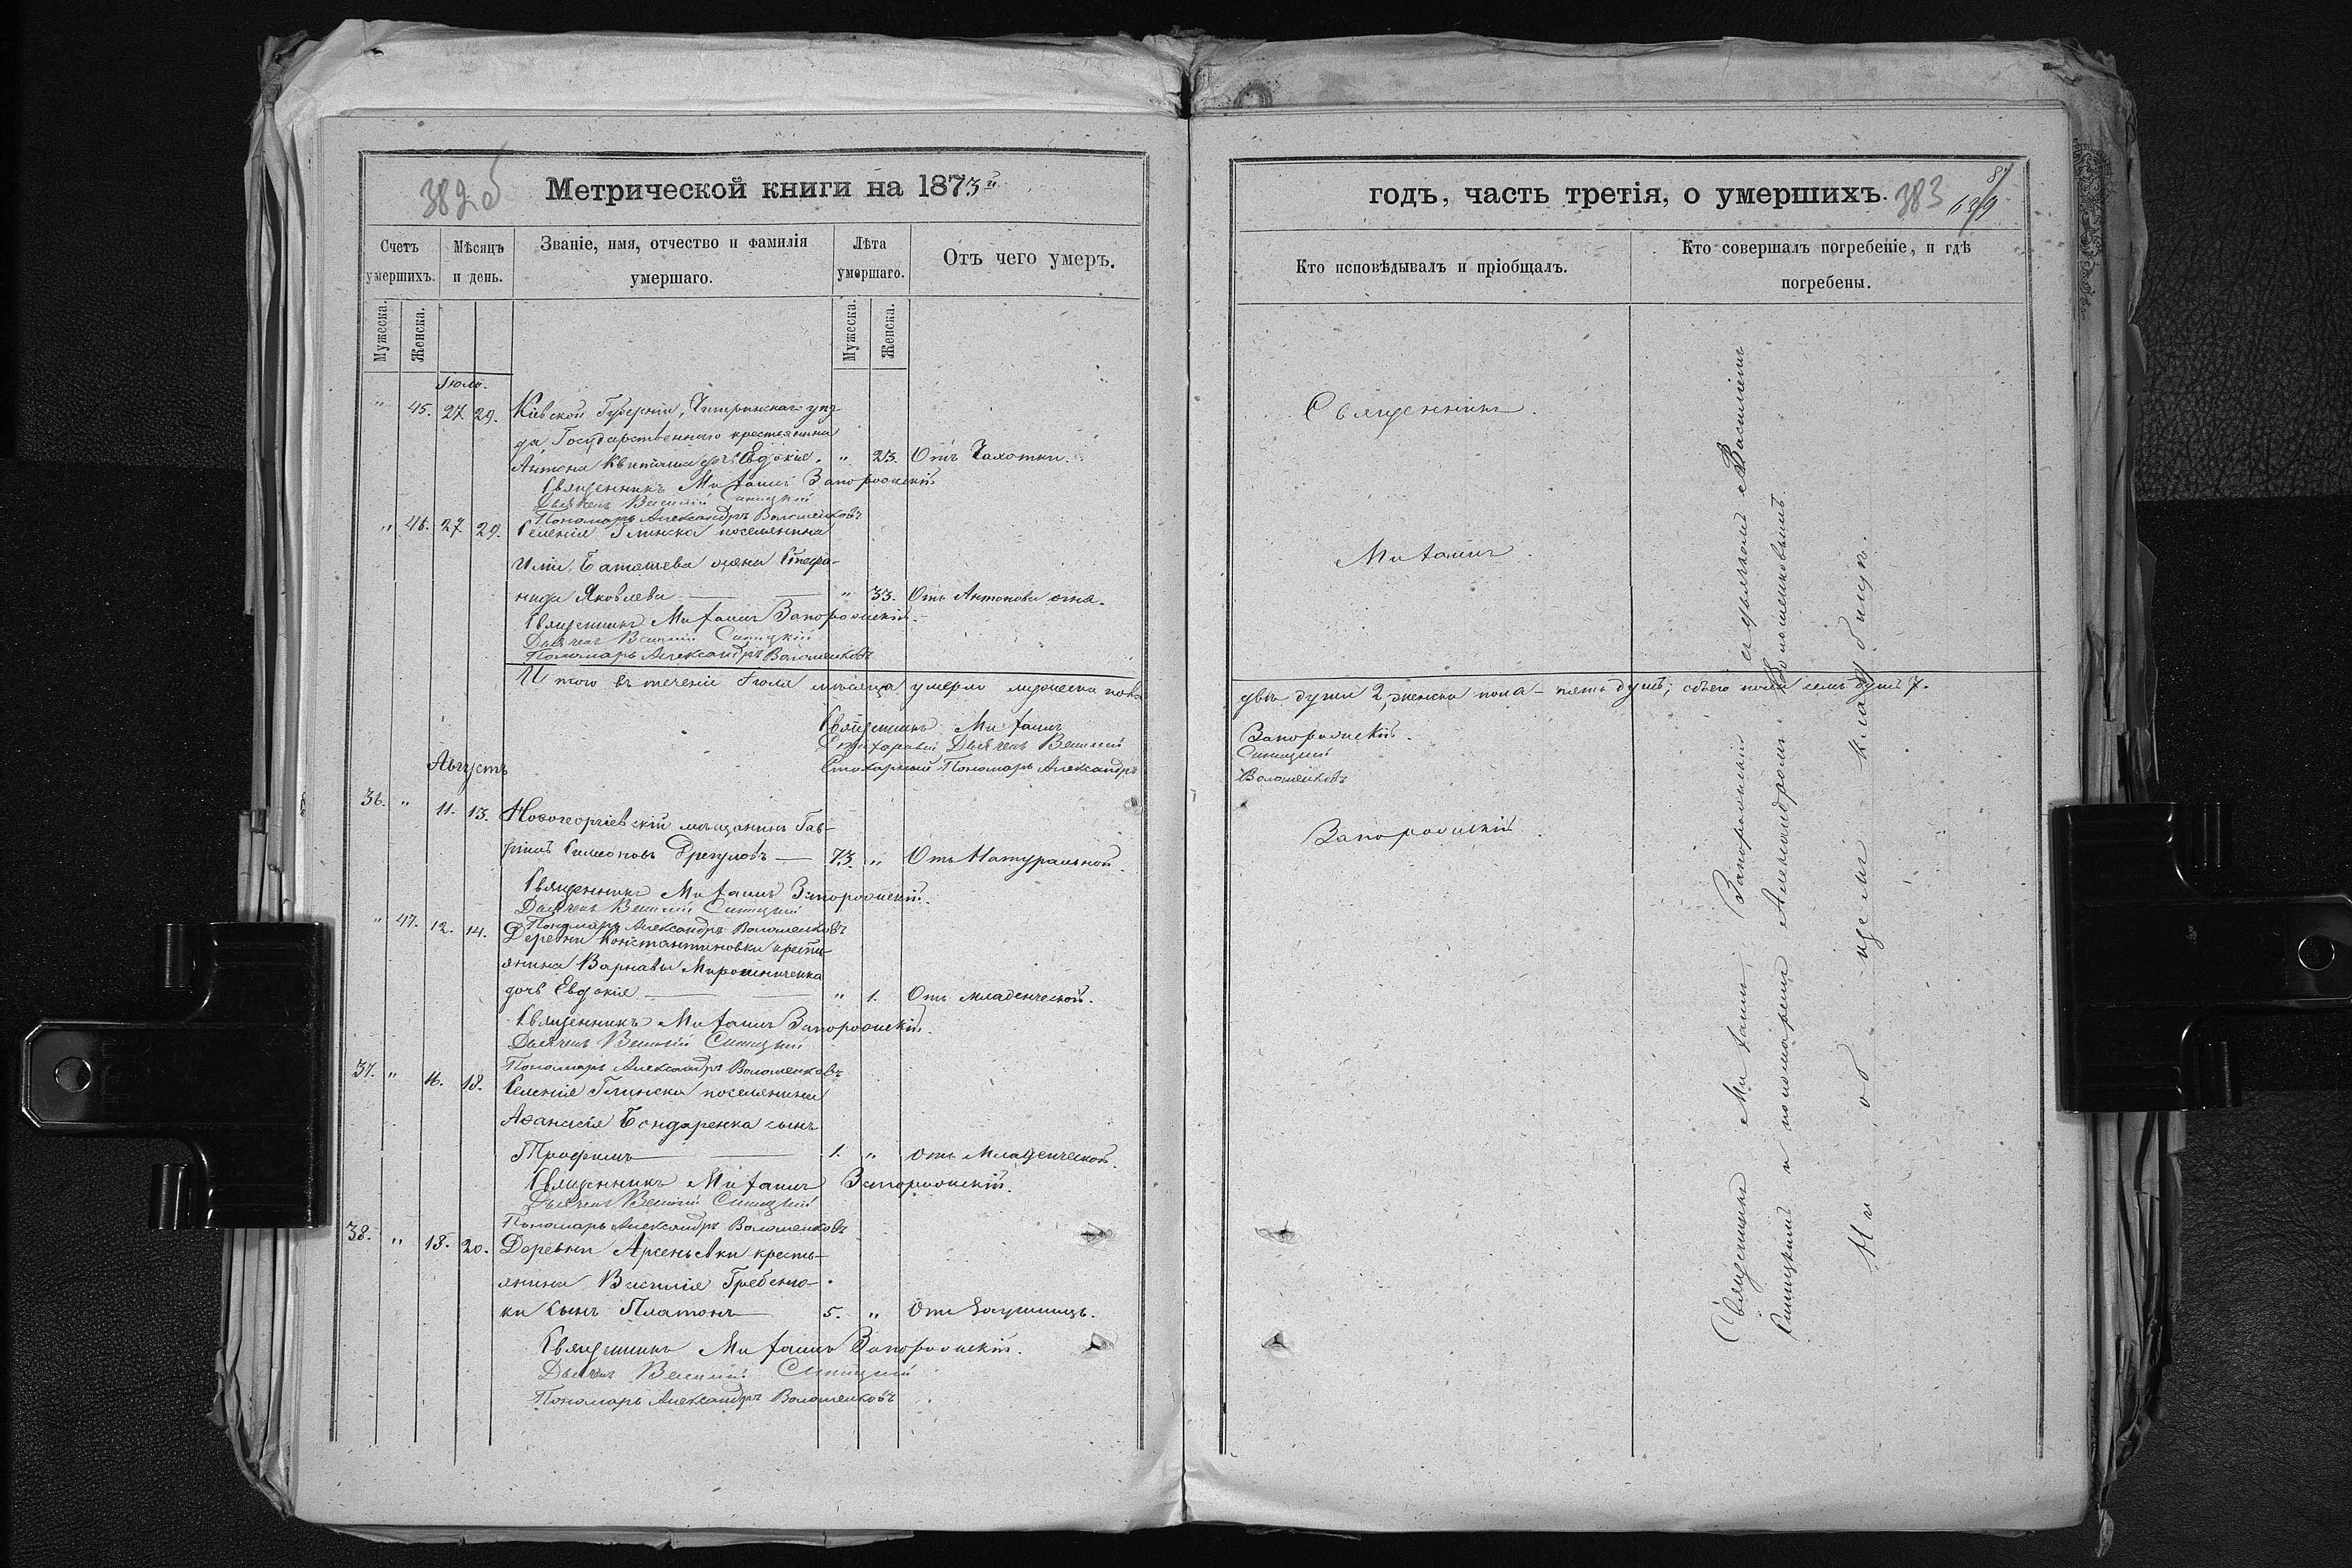 382 б
Метрической книги на 1873й
Счетъ умершихъ.
Мѣсяцъ и день.
Званіе, имя, отчество и фамилія умершаго.
Лѣта умершаго.
Отъ чего умеръ.
Мужеска.
Женска.
Мужеска.
Женска.
Іюль.
" 45. 27 29. Кіевской Губерніи, Чигринскаго уѣз-
да Государственнаго крестьянина
Антона дочь Евдокія. " 23. Отъ Чахотки.
Священникъ Михаилъ Запорожскій
Дьячекъ Василій Синицкій
Пономарь Александръ Волошенковъ
" 46. 27 29. Селенія Глинска поселянина
Баташева жена Стефа-
нида Яковлева " 33. Отъ Антонова огня.
Священникъ Михаилъ Запорожскій.
Дьячекъ Василій Синицкій
Пономарь Александръ Волошенковъ
Итого въ теченіи Іюля мѣсяца умерло мужеска пола
Священникъ Михаилъ
Стихарный Дьячекъ Василій
Стихарный Пономарь Александръ
Августъ
36. " 11. 13. Новогеоргіевскій мѣщанинъ Гав-
ріилъ Симеоновъ 73. " Отъ Натуральной.
Священникъ Михаилъ Запорожскій.
Дьячекъ Василій Синицкій
Пономарь Александръ Волошенковъ
" 47. 12. 14. Деревни Константиновки кресть-
янина Варнавы Мирошниченка
дочь Евдокія " 1. Отъ младенческой.
Священникъ Михаилъ Запорожскій.
Дьячекъ Василій Синицкій
Пономарь Александръ Волошенковъ
37. " 16. 18. Селенія Глинска поселянина
Аѳанасія Бондаренка сынъ
Трофимъ 1. " Отъ Младенческой.
Священникъ Михаилъ Запорожскій.
Дьячекъ Василій Синицкій
Пономарь Александръ Волошенковъ
38. " 18. 20. Деревни Арсеньевки кресть-
янина Василія Гребеню-
ки сынъ Платонъ 5. " Отъ Заушницъ.
Священникъ Михаилъ Запорожскій.
Дьячекъ Василій Синицкій
Пономарь Александръ Волошенковъ
годъ, часть третія, о умершихъ.
383
Кто исповѣдывалъ и пріобщалъ.
Кто совершалъ погребеніе, и гдѣ погребены.
Священникъ.
Михаилъ.
двѣ души 2, женска пола – пять душъ; обоего пола семь душъ 7.
Запорожскій.
Синицкій
Волошенковъ
Запорожскій.
Священникъ Михаилъ Запорожскій съ дьячкомъ Василіемъ
Синицкимъ и пономаремъ Александромъ Волошенковымъ.
На общемъ кладбищѣ.